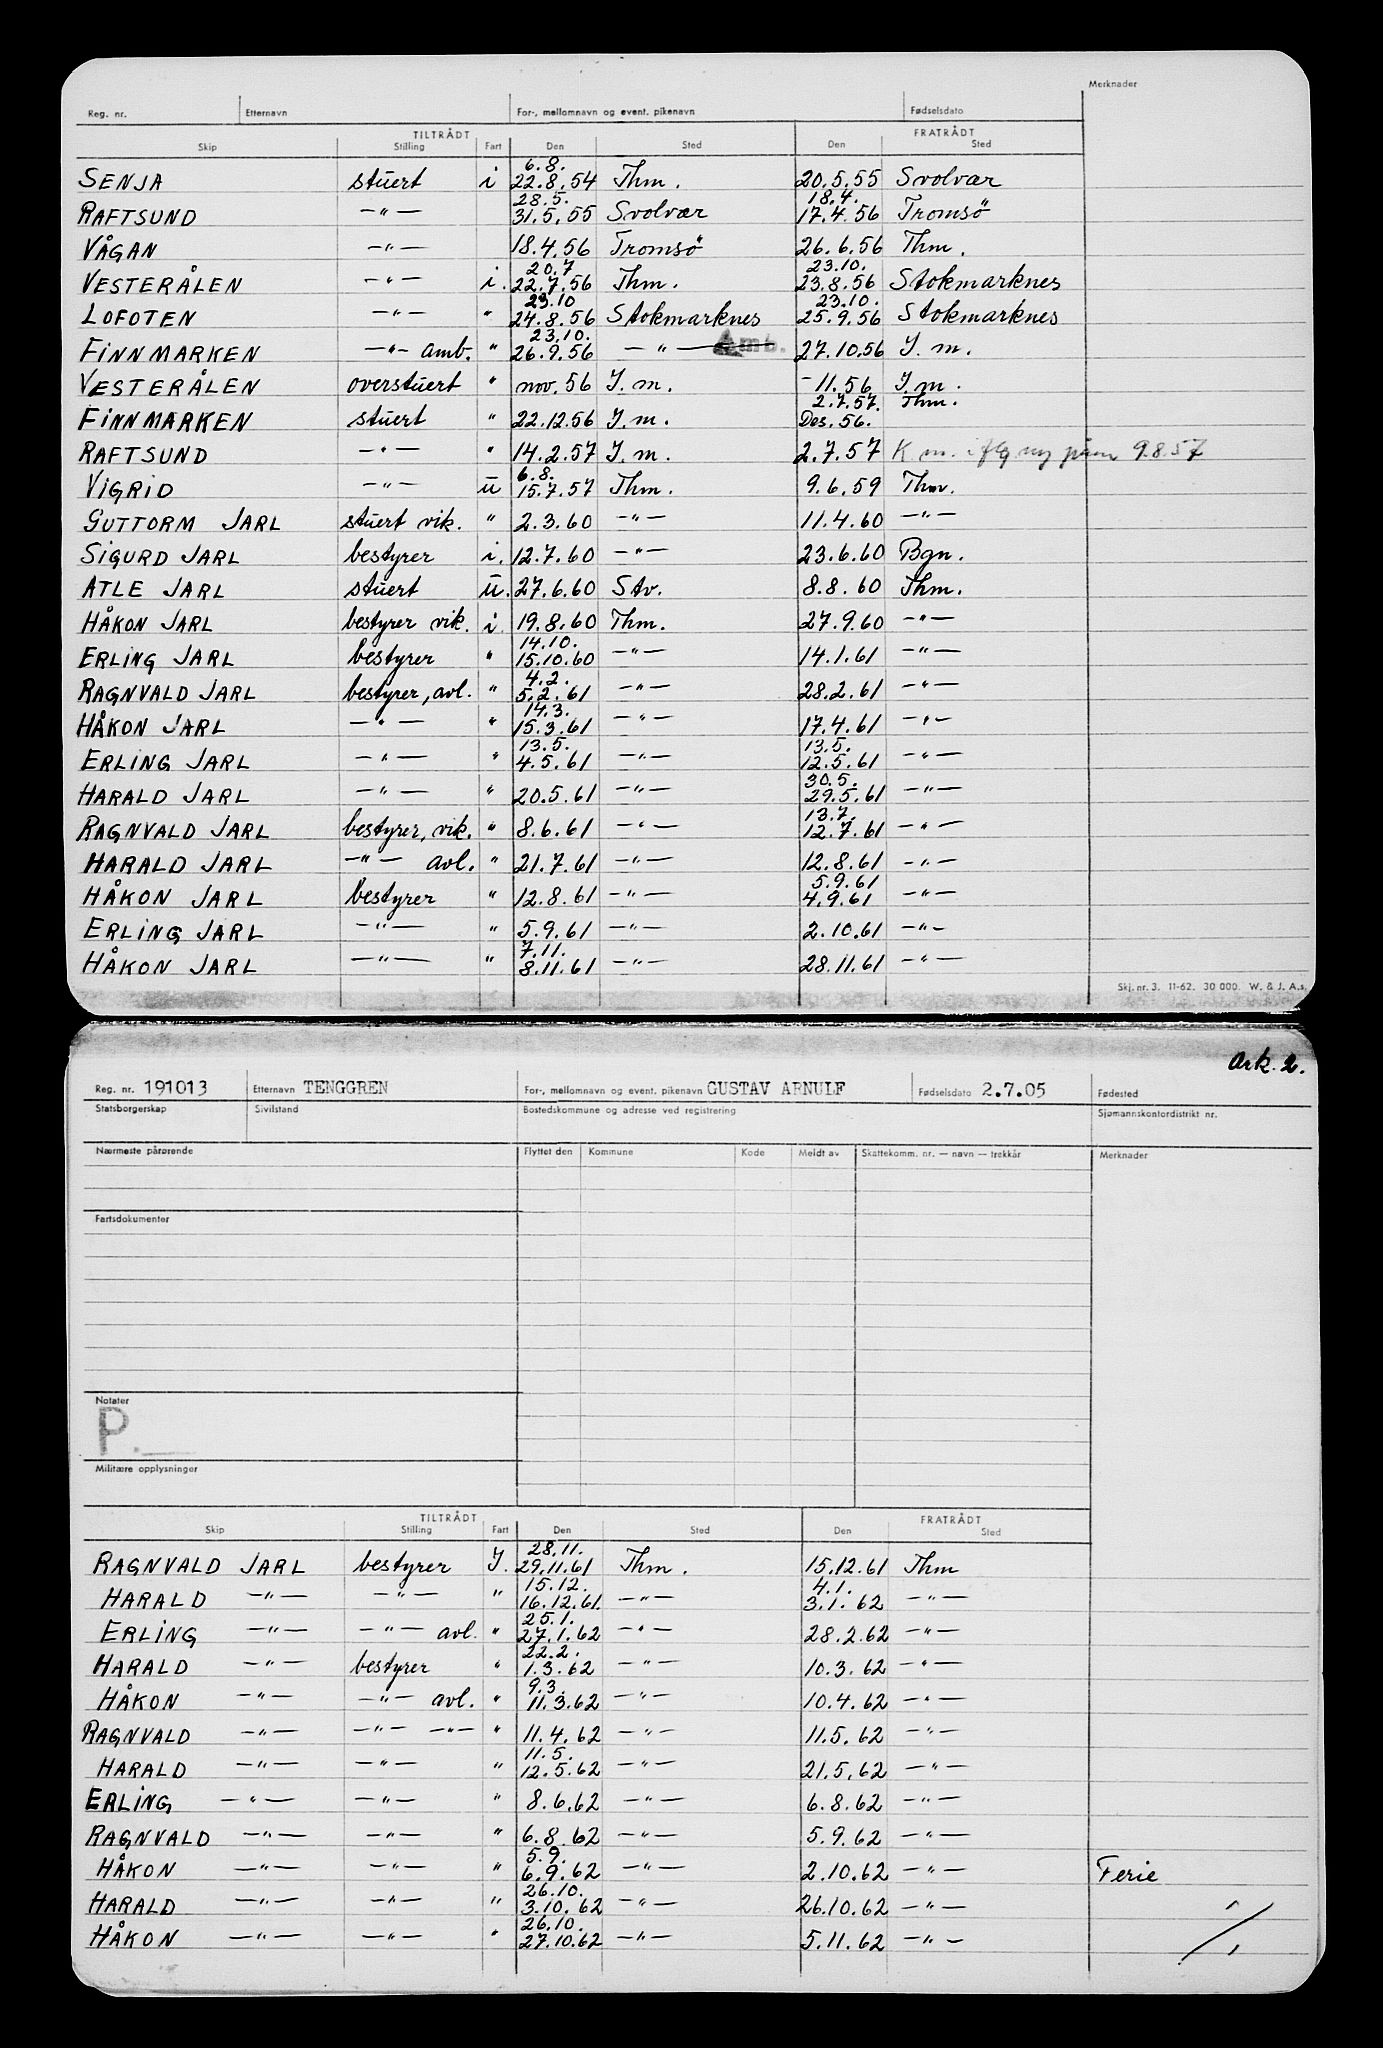 Merknader
Reg. nr. Etternavn For-, mellomnavn og event. pikenavn Fødselsdato
TILTRÅDT FRATRÅDT
Skip Stilling Fart Den Sted Den Sted
6.8.
SENJA stuert i 22.8.54 Thm. 20.5.55 Svolvær
28.5. 18.4.
RAFTSUND —"— 31.5.55 Svolvær 17.4.56 Tromsö
VÅGAN —"— 18.4.56 Tromsö 26.6.56 Thm.
20.7 23.10.
VESTERÅLEN —"— i. 22.7.56 Thm. 23.8.56 Stokmarknes
23.10 23.10.
LOFOTEN —"— " 24.8.56 Stokmarknes 25.9.56 Stokmarknes
23.10.
FINNMARKEN —"— amb. " 26.9.56 —"— Amb. 27.10.56 I.m.
VESTERÅLEN overstuert " nov. 56 I.m. -11.56 I.m.
2.7.57. Thm.
FINNMARKEN stuert " 22.12.56 I.m. Des. 56.
RAFTSUND —"— " 14.2.57 I.m. 2.7.57 K.m. iflg ny 9.8.57
6.8.
VIGRID —"— u 15.7.57 Thm. 9.6.59 Thm.
GUTTORM JARL stuert vik. " 2.3.60 —"— 11.4.60 —"—
SIGURD JARL bestyrer i. 12.7.60 —"— 23.6.60 Bgn.
ATLE JARL stuert u. 27.6.60 Stv. 8.8.60 Thm.
HÅKON JARL bestyrer vik. i. 19.8.60 Thm. 27.9.60 —"—
14.10.
ERLING JARL bestyrer " 15.10.60 —"— 14.1.61 —"—
4.2.
RAGNVALD JARL bestyrer, avl. " 5.2.61 —"— 28.2.61 —"—
14.3.
HÅKON JARL —"— " 15.3.61 —"— 17.4.61 —"—
13.5. 13.5.
ERLING JARL —"— " 4.5.61 —"— 12.5.61 —"—
30.5.
HARALD JARL —"— " 20.5.61 —"— 29.5.61 —"—
13.7.
RAGNVALD JARL bestyrer, vik. " 8.6.61 —"— 12.7.61 —"—
HARALD JARL —"— avl. " 21.7.61 —"— 12.8.61 —"—
5.9.61
HÅKON JARL bestyrer " 12.8.61 —"— 4.9.61 —"—
ERLING JARL —"— " 5.9.61 —"— 2.10.61 —"—
7.11.
HÅKON JARL —"— " 8.11.61 —"— 28.11.61 —"—
Skj. nr. 3. 11-62. 30 000. W. & J. A.s.
Ark. 2.
Reg. nr. 191013 Etternavn TENGGREN For-, mellomnavn og event. pikenavn GUSTAV ARNULF Fødselsdato 2.7.05 Fødested
Statsborgerskap Sivilstand Bostedskommune og adresse ved registrering Sjømannskontordistrikt nr.
Nærmeste pårørende Flyttet den Kommune Kode Meldt av Skattekomm. nr. — navn — trekkår Merknader
Fartsdokumenter
Notater
P.
Militære opplysninger
TILTRÅDT FRATRÅDT
Skip Stilling Fart Den Sted Den Sted
28.11.
RAGNVALD JARL bestyrer I. 29.11.61 Thm. 15.12.61 Thm
15.12. 4.1.
HARALD —"— —"— " 16.12.61. —"— 3.1.62 —"—
25.1.
ERLING —"— —"— avl. " 27.1.62 —"— 28.2.62 —"—
22.2.
HARALD —"— bestyrer " 1.3.62 —"— 10.3.62 —"—
9.3.
HÅKON —"— —"— avl. " 11.3.62 —"— 10.4.62 —"—
RAGNVALD —"— —"— —"— " 11.4.62 —"— 11.5.62 —"—
11.5.
HARALD —"— —"— " 12.5.62 —"— 21.5.62 —"—
ERLING —"— —"— " 8.6.62 —"— 6.8.62 —"—
RAGNVALD —"— —"— " 6.8.62 —"— 5.9.62 —"—
5.9.
HÅKON —"— —"— " 6.9.62 —"— 2.10.62 —"— Ferie
26.10.
HARALD —"— —"— " 3.10.62 —"— 26.10.62 —"—
26.10.
HÅKON —"— —"— " 27.10.62 —"— 5.11.62 —"—